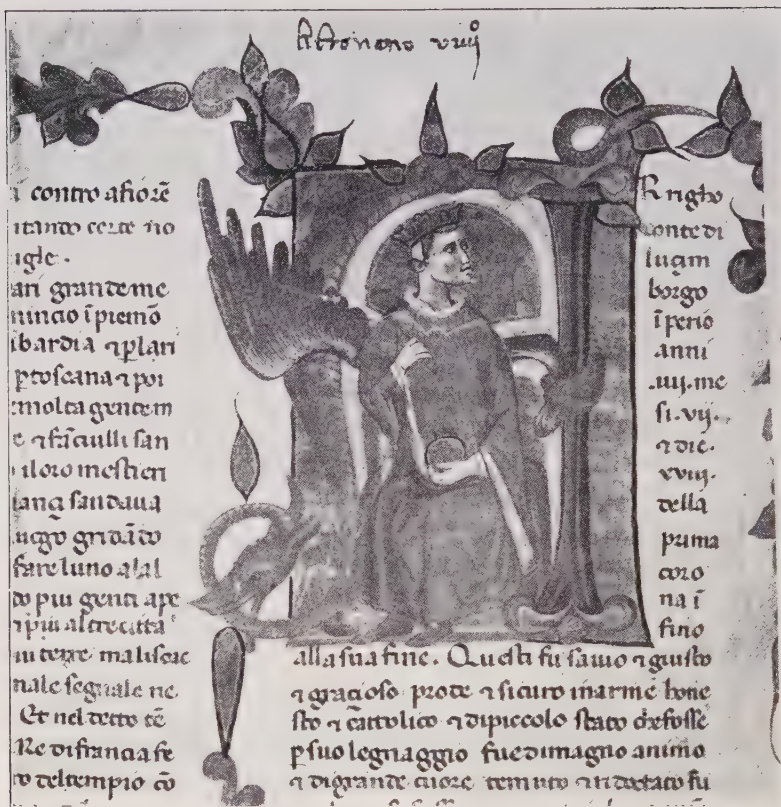 a contro a fiorē
itando certe no
igle.
ari grande me
nincio īpiemō
ibardia ⁊ plari
ptoscana ⁊ poi
emolta gentem
e ⁊ fāciulli san
iloro mestieri
ianci sandaua
uogo gridādo
fare luno alal
do piu genti ape
⁊ piu altre citta
iu terre malisce
nale segnale ne
Et nel detto tē
Re difrancia fe
ro deltempio cō
R righo
conte di
lucim
borgo
īperio
anni
.iiij. me
si .vij.
⁊ die.
xviij.
della
prima
coro
na ī
fino
alla sua fine. Questi fu sauio ⁊ giusto
⁊ gracioso prode ⁊ sicuro inarme hone
sto ⁊ cattolico ⁊ dipiccolo stato chefosse
psuo legnaggio fue dimagno animo
⁊ digrande cuore temuto ⁊ fu